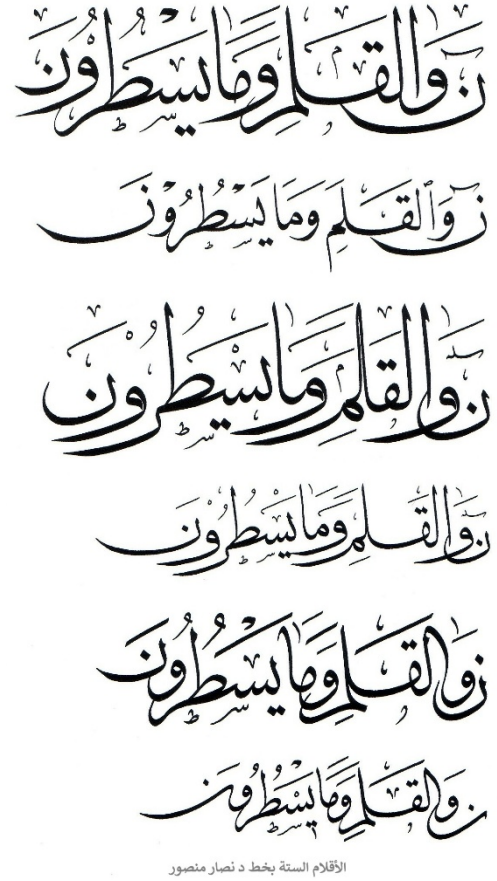 ن وَالقَلَمِ وَمَا يَسْطُرُونَ
ن وَٱلقَلَمِ وَمَا يَسْطُرُونَ
ن وَالقَلَمِ وَمَا يَسْطُرُونَ
ن وَالقَلَمِ وَمَا يَسْطُرُونَ
ن وَالقَلَمِ وَمَا يَسْطُرُونَ
ن وَالقَلَمِ وَمَا يَسْطُرُونَ
الأقلام الستة بخط د نصار منصور